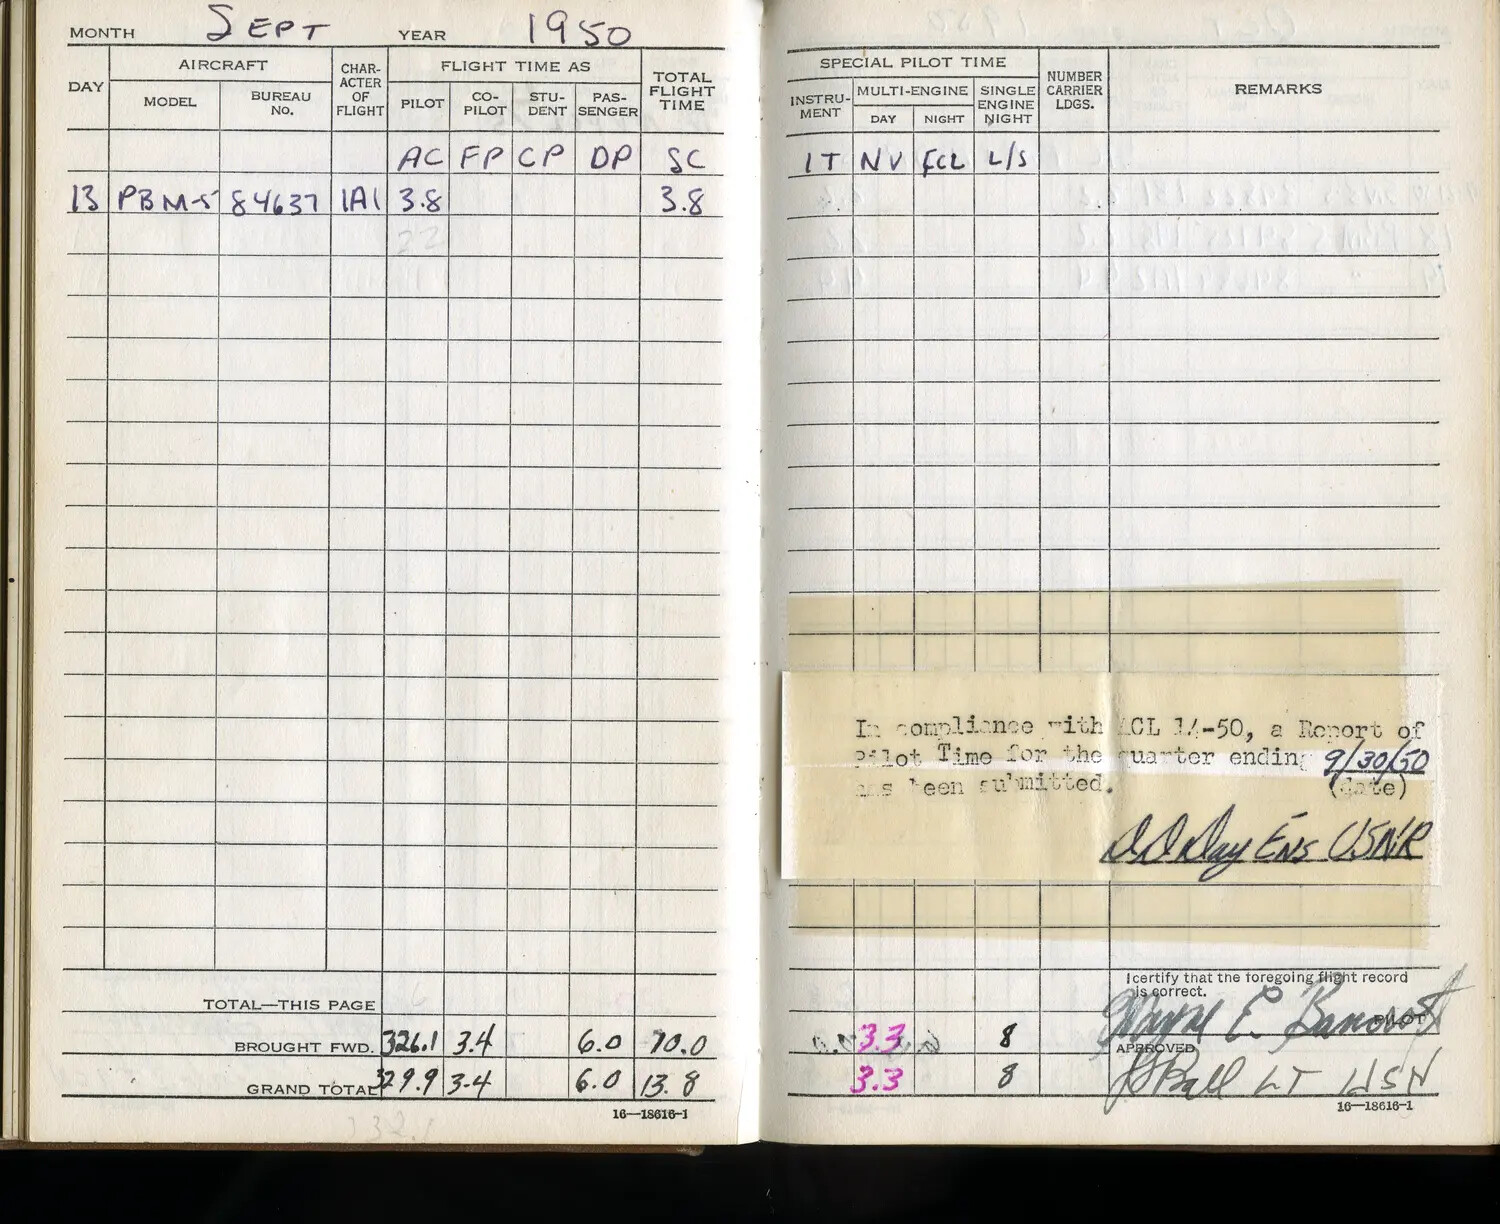 MONTH SEPT YEAR 1950
DAY AIRCRAFT CHAR-ACTER OF FLIGHT FLIGHT TIME AS TOTAL FLIGHT TIME
MODEL BUREAU NO. PILOT CO-PILOT STU-DENT PAS-SENGER
AC FP CP DP SC
13 PBM-5 84637 1A1 3.8 3.8
22
TOTAL—THIS PAGE
BROUGHT FWD. 326.1 3.4 6.0 70.0
GRAND TOTAL 329.9 3.4 6.0 13.8
16—18616-1
SPECIAL PILOT TIME NUMBER CARRIER LDGS. REMARKS
INSTRU-MENT MULTI-ENGINE SINGLE ENGINE NIGHT
DAY NIGHT
IT NV FCL L/S
In compliance with ACL 14-50, a Report of
Pilot Time for the quarter ending 9/30/50
has been submitted. (date)
D D Day Ens USNR
I certify that the foregoing flight record
is correct.
Wayne E. Bancroft
PILOT
3.3 8
APPROVED
3.3 8
Ball LT USN
16—18616-1